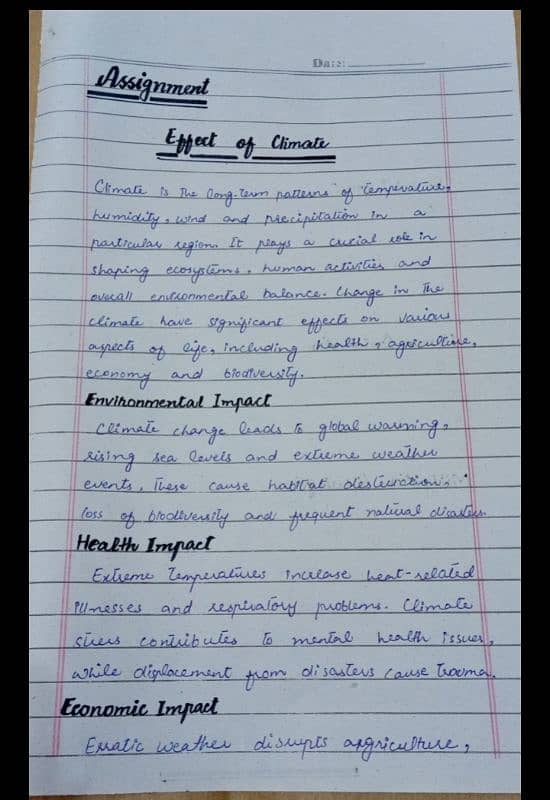 Date:
Assignment
Effect of Climate
Climate is the long-term patterns of temperature,
humidity, wind and precipitation in a
particular region. It plays a crucial role in
shaping ecosystems, human activities and
overall environmental balance. Change in the
climate have significant effects on various
aspects of life, including health, agriculture,
economy and biodiversity.
Environmental Impact
Climate change leads to global warming,
rising sea levels and extreme weather
events, These cause habitat destruction,
loss of biodiversity and frequent natural disasters.
Health Impact
Extreme Temperatures increase heat-related
illnesses and respiratory problems. Climate
stress contributes to mental health issues,
while displacement from disasters cause trovma.
Economic Impact
Erratic weather disrupts argriculture,